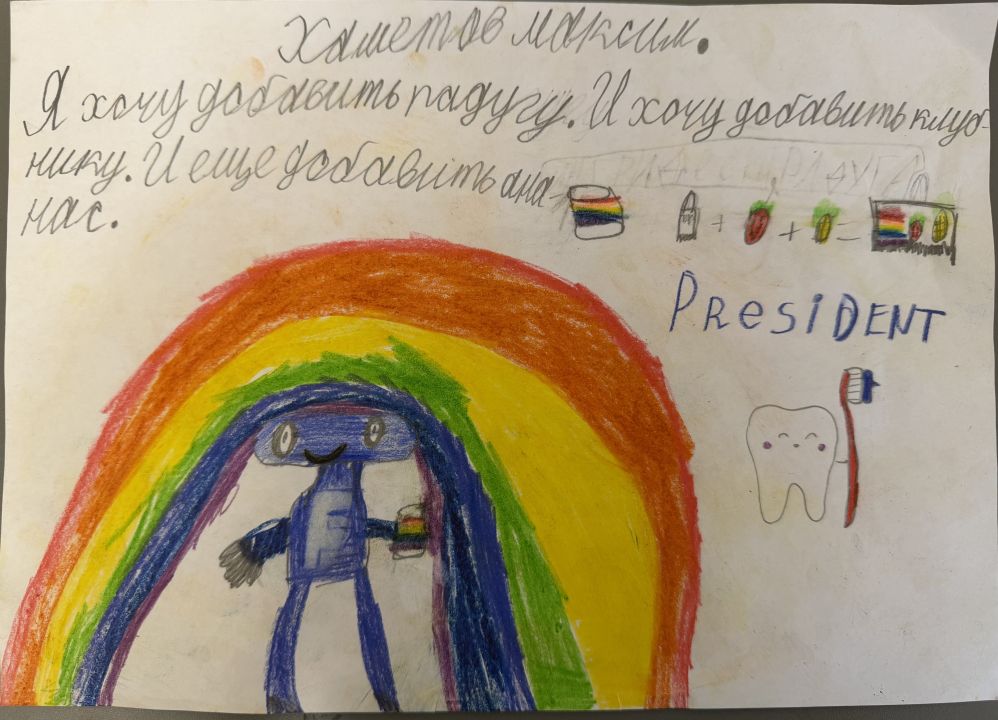 Хаметов Максим.
Я хочу добавить радугу. И хочу добавить клуб-
нику. И еще добавить ана-
нас.
+ + =
PResiDENT